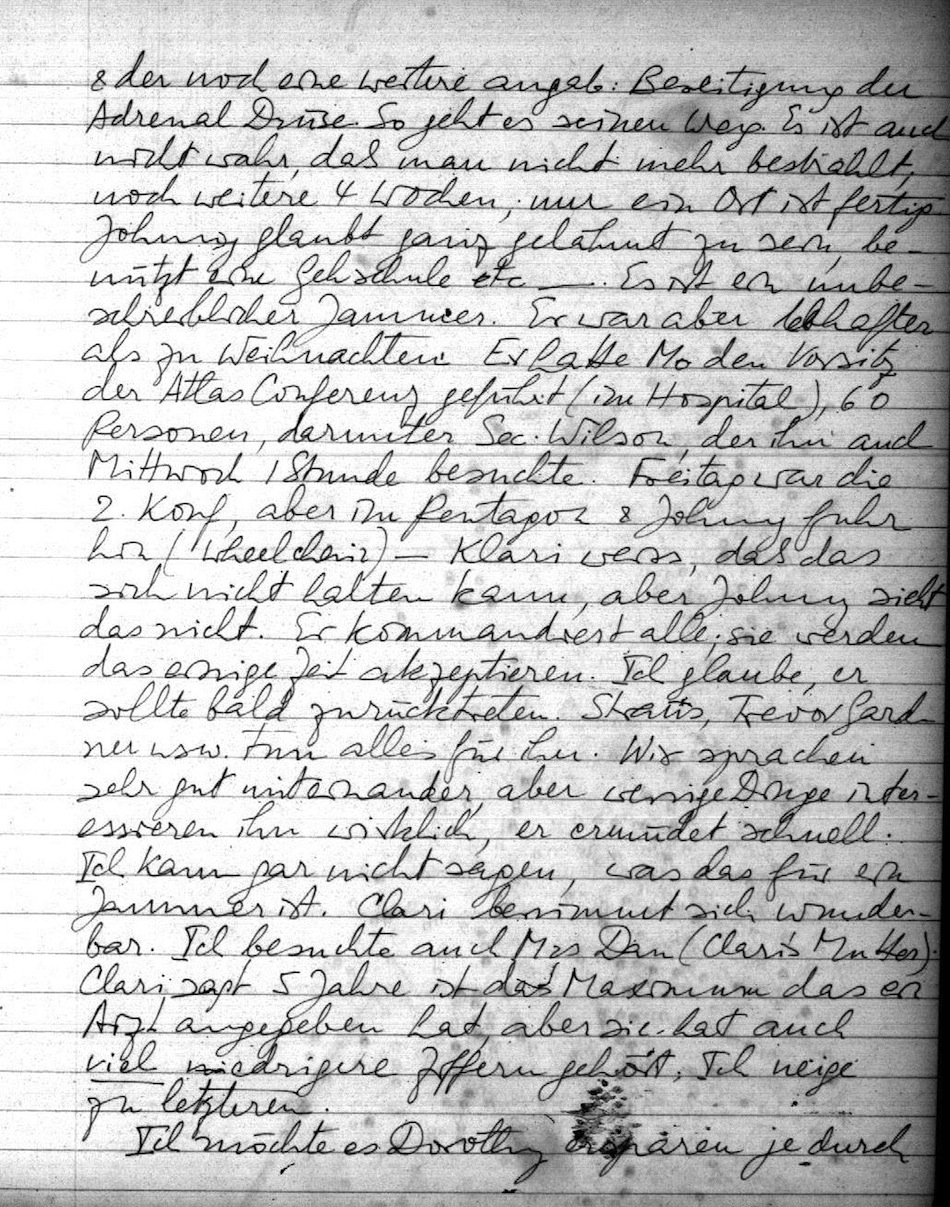 & der noch eine weitere angab: Beseitigung der
Adrenal Drüse. So geht es seinen Weg. Es ist auch
nicht wahr, daß man nicht mehr bestrahlt,
noch weitere 4 Wochen, nur ein Ort ist fertig
Johnny glaubt ganz gelähmt zu sein, be-
nützt eine Gehschule etc —. Es ist ein unbe-
schreiblicher Jammer. Er war aber lebhafter
als zu Weihnachten. Er hatte Mo den Vorsitz
der Atlas Conferenz geführt (im Hospital), 60
Personen, darunter Sec. Wilson, der ihn auch
Mittwoch 1 Stunde besuchte. Freitag war die
2. Konf, aber im Pentagon & Johnny fuhr
hin (Wheelchair) — Klari weiss, daß das
sich nicht halten kann, aber Johnny sieht
das nicht. Er kommandiert alle; sie werden
das einige Zeit akzeptieren. Ich glaube, er
sollte bald zurücktreten. Strauss, Trevor Gard-
ner usw. tun alles für ihn. Wir sprachen
sehr gut miteinander, aber wenige Dinge inter-
essieren ihn wirklich, er ermüdet schnell.
Ich kann gar nicht sagen, was das für ein
Jammer ist. Clari benimmt sich wunder-
bar. Ich besuchte auch Mrs Dan (Claris Mutter).
Clari sagt 5 Jahre ist das Maximum das ein
Arzt angegeben hat, aber sie hat auch
viel niedrigere Ziffern gehört. Ich neige
zu letzteren.
Ich möchte es Dorothy ersparen je durch